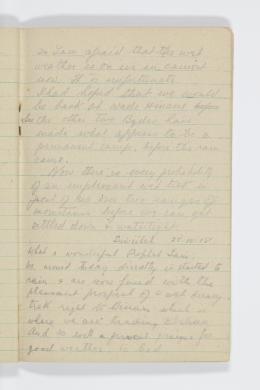 I am afraid that the wet
weather is on us in earnest
now. It is unfortunate
I had hoped that we would
be back at Wadi Hinaui before
the other two Bgdes have
made what appears to be a
permanent camp, before the rain
came.
Now there is every probability
of an unpleasant wet trek in
front of us over two ranges of
mountains before we can get
settled down & watertight.
25-10-18
What a wonderful Prophet I am.
We moved today directly it started to
rain & are now faced with the
pleasant prospect of a wet dreary
trek right to which is
where we are heading
And so will a fervent prayer for
good weather to bed